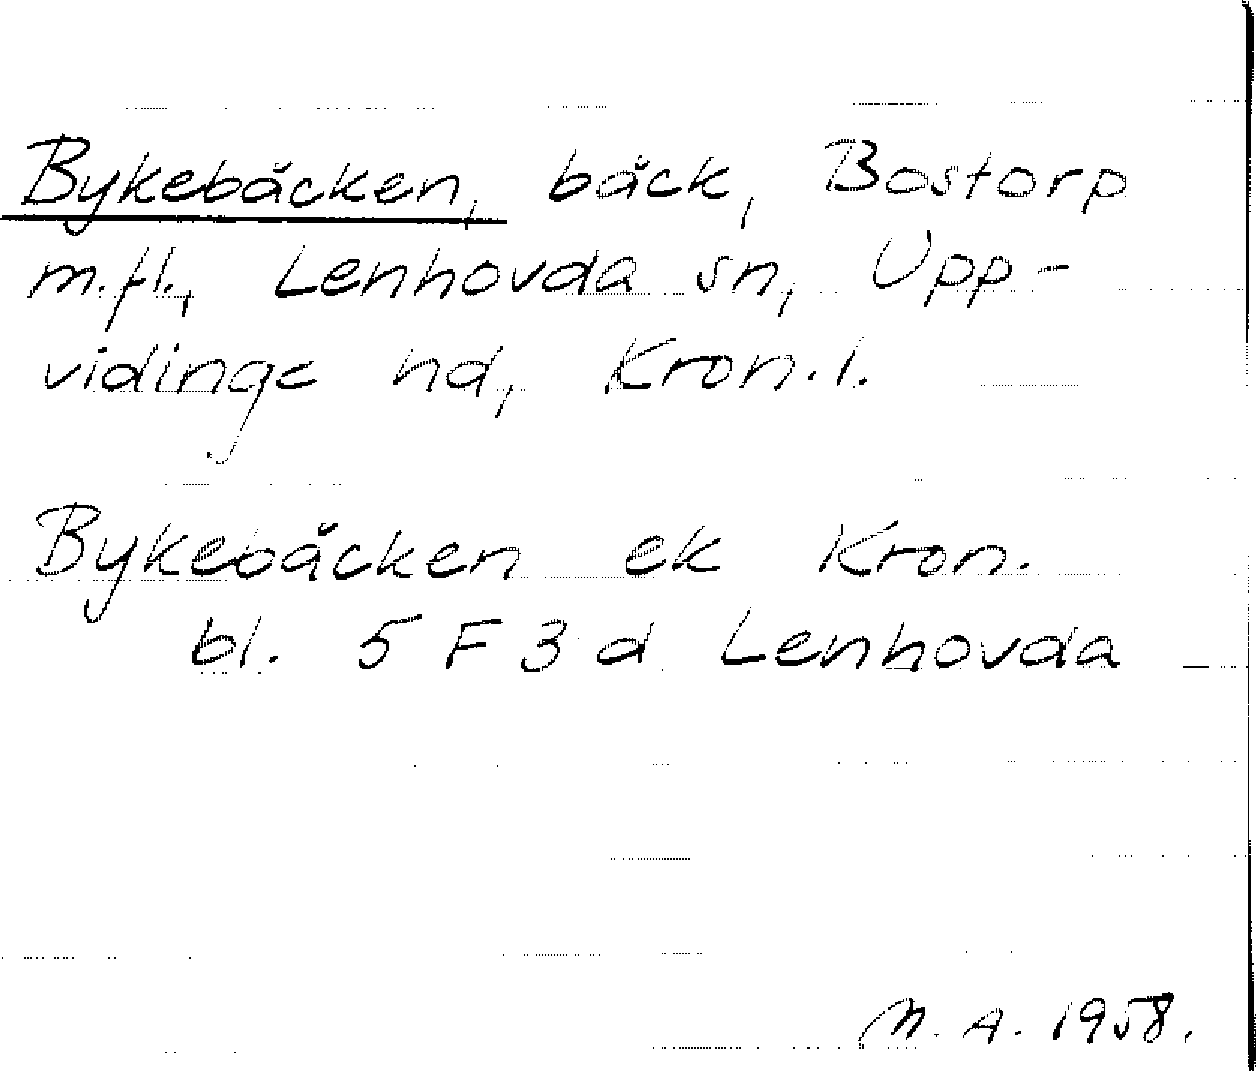 Bykebäcken, bäck, Bostorp
m.fl., Lenhovda sn, Upp-
vidinge hd, Kron.l.
Bykebäcken ek Kron.
bl. 5 F 3 d Lenhovda
M. A. 1958.